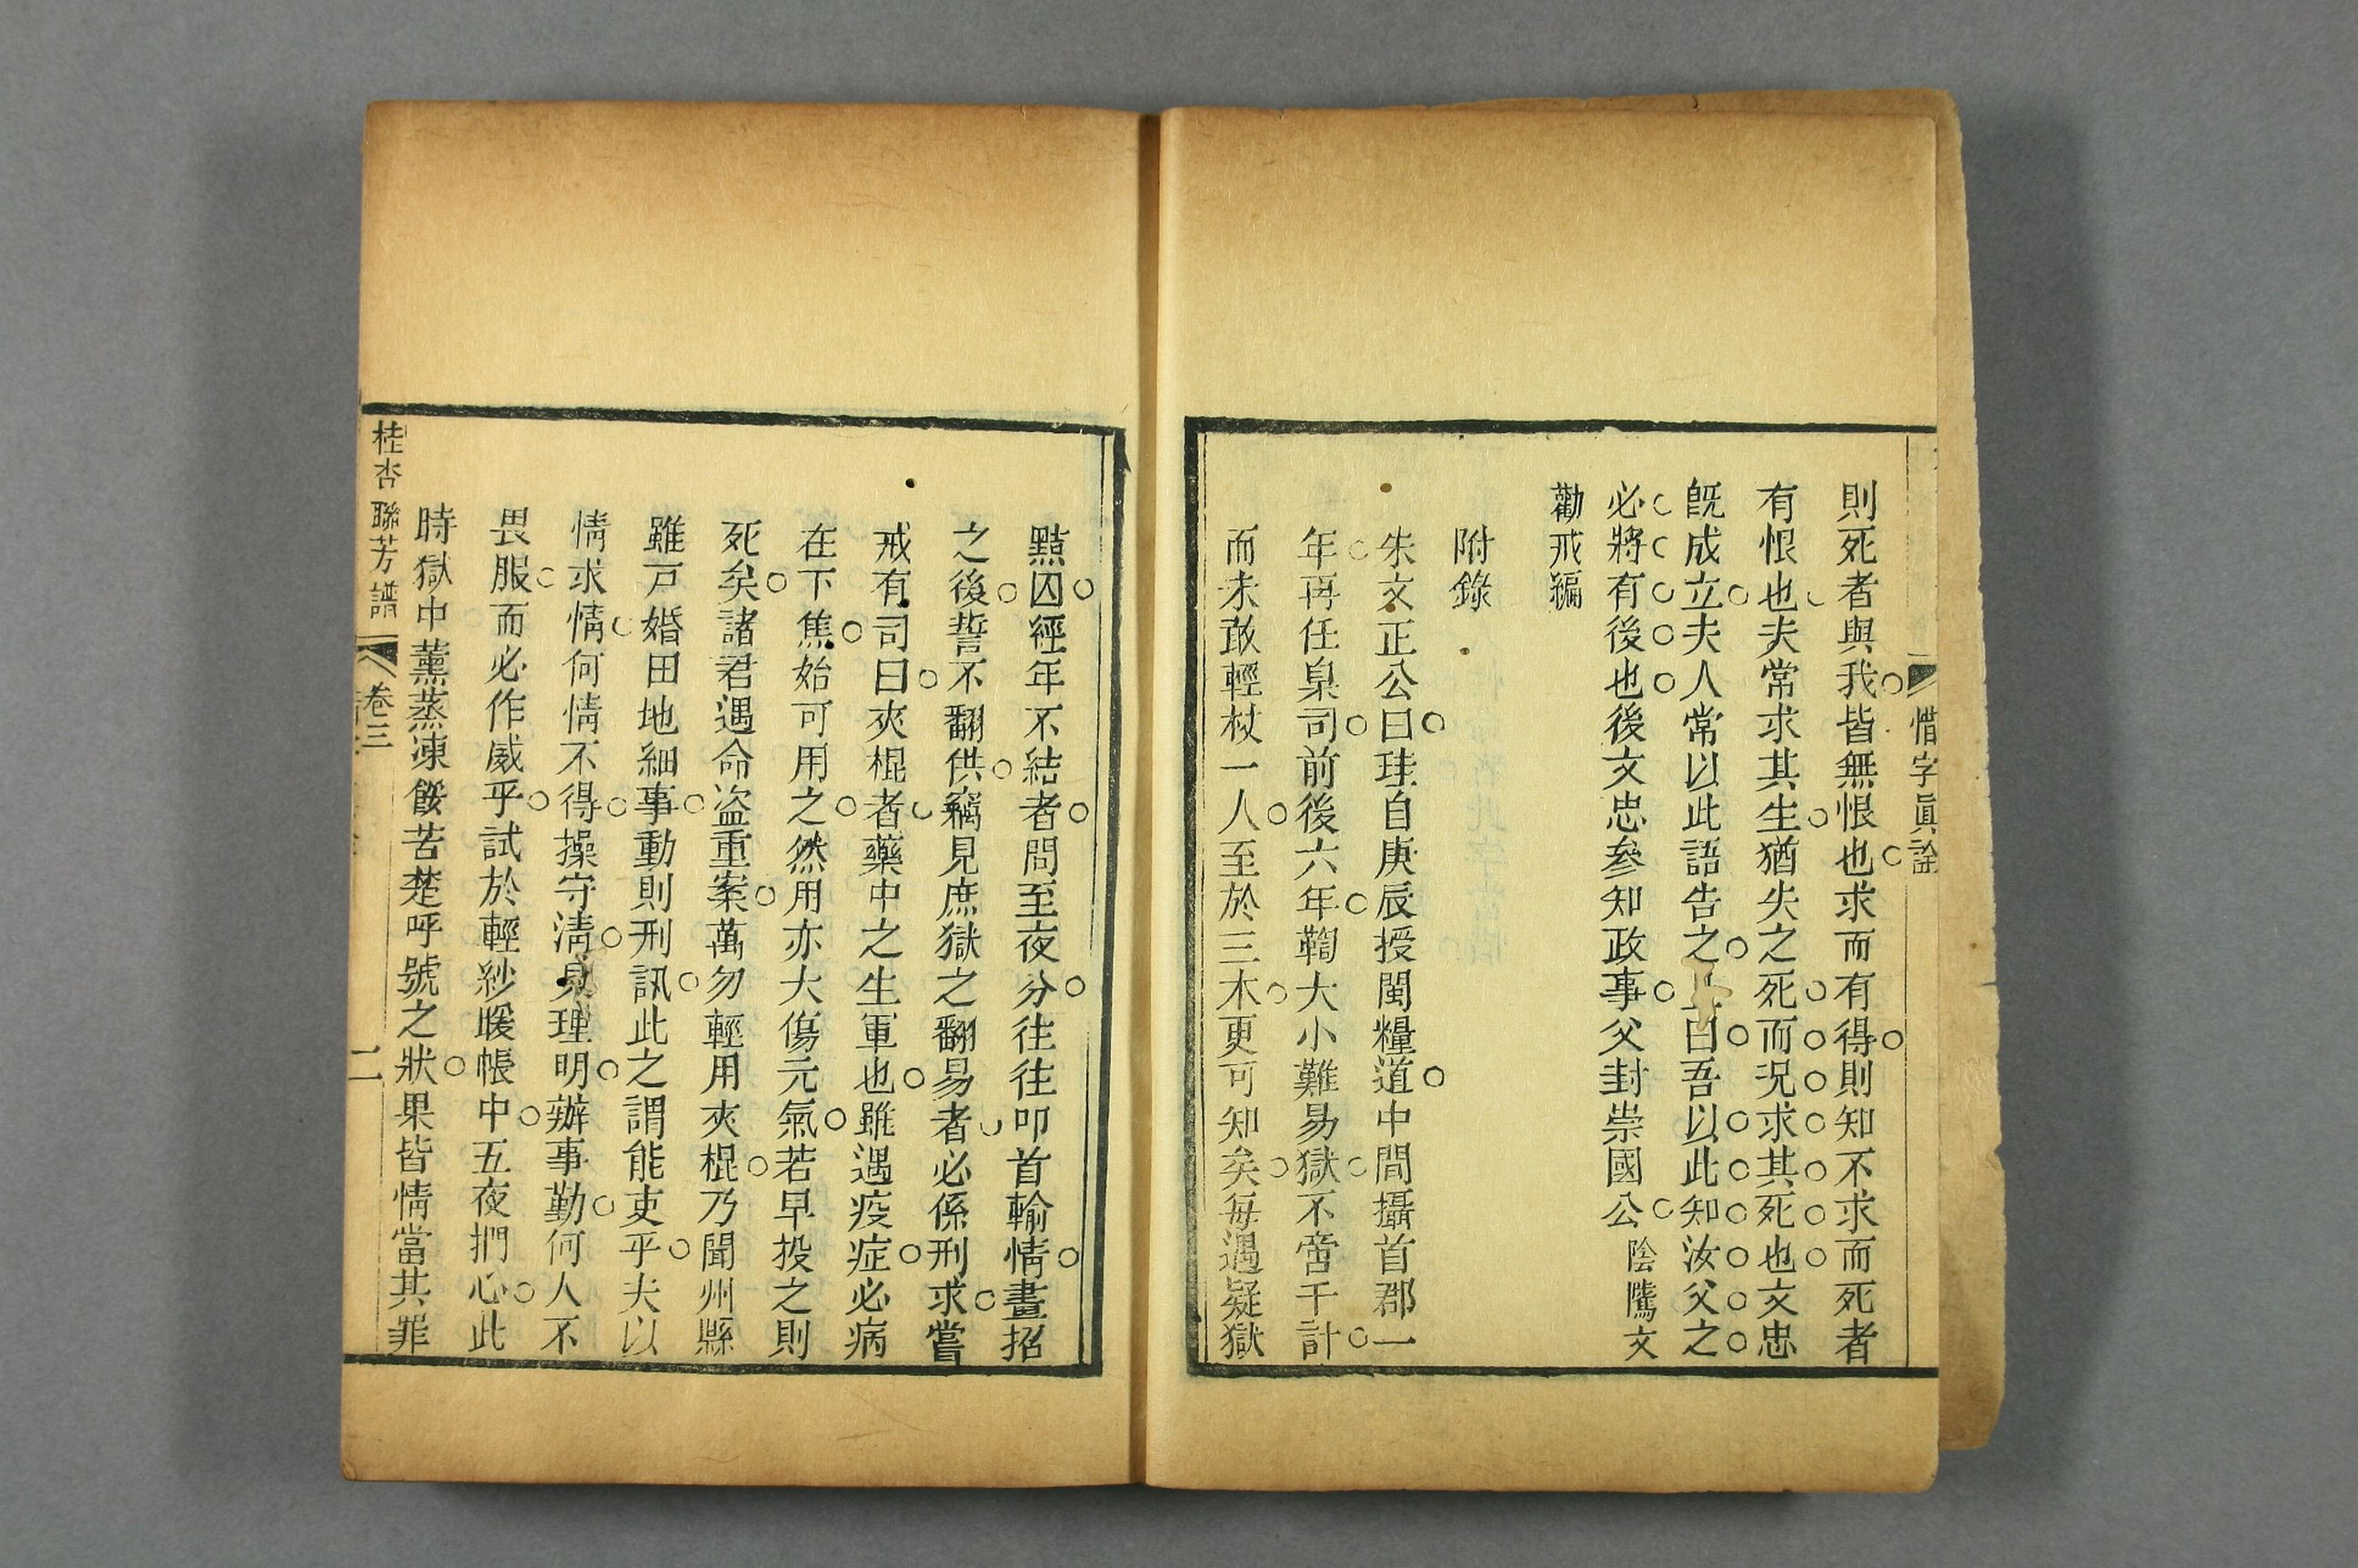 惜字眞詮
則死者與我皆無恨也求而有得則知不求而死者
有恨也夫常求其生猶失之死而況求其死也文忠
旣成立夫人常以此語告之曰吾以此知汝父之
必將有後也後文忠參知政事父封崇國公陰隲文
勸戒編
附錄
朱文正公曰珪自庚辰授閩糧道中間攝首郡一
年再任臬司前後六年鞫大小難易獄不啻千計
而未敢輕杖一人至於三木更可知矣每遇疑獄
點囚經年不結者問至夜分往往叩首輸情畫招
之後誓不翻供竊見庶獄之翻易者必係刑求嘗
戒有司曰夾棍者藥中之生軍也雖遇疫症必病
在下焦始可用之然用亦大傷元氣若早投之則
死矣諸君遇命盜重案萬勿輕用夾棍乃聞州縣
雖戸婚田地細事動則刑訊此之謂能吏乎夫以
情求情何情不得操守淸見理明辦事勤何人不
畏服而必作威乎試於輕紗暖帳中五夜捫心此
時獄中薰蒸凍餒苦楚呼號之狀果皆情當其罪
桂杏聯芳譜 卷三 二